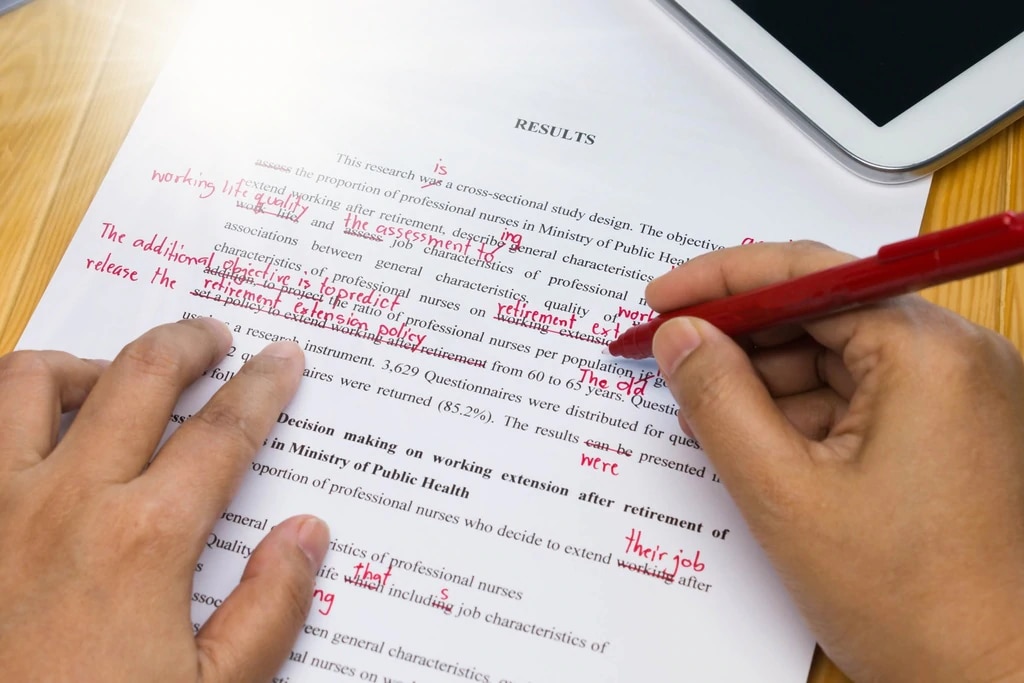 RESULTS
is
This research was a cross-sectional study design. The objective
assess the proportion of professional nurses in Ministry of Public
working life quality
extend working after retirement, describe general characteristics
ing
work life and assess job characteristics of professional
the assessment to
associations between general characteristics, quality of work
characteristics of professional nurses on working
retirement ext
The additional objective is to predict
addition, to project the ratio of professional nurses per population if
release the retirement extension policy
set a policy to extend working after retirement from 60 to 65 years.
The old
a research instrument. 3,629 Questionnaires were distributed for
2 aires were returned (85.2%). The results can be presented
were
Decision making on working extension after retirement of
in Ministry of Public Health
proportion of professional nurses who decide to extend working after
their job
istics of professional nurses
Quality life which including job characteristics of
that s
ng
een general characteristics,
nal nurses on